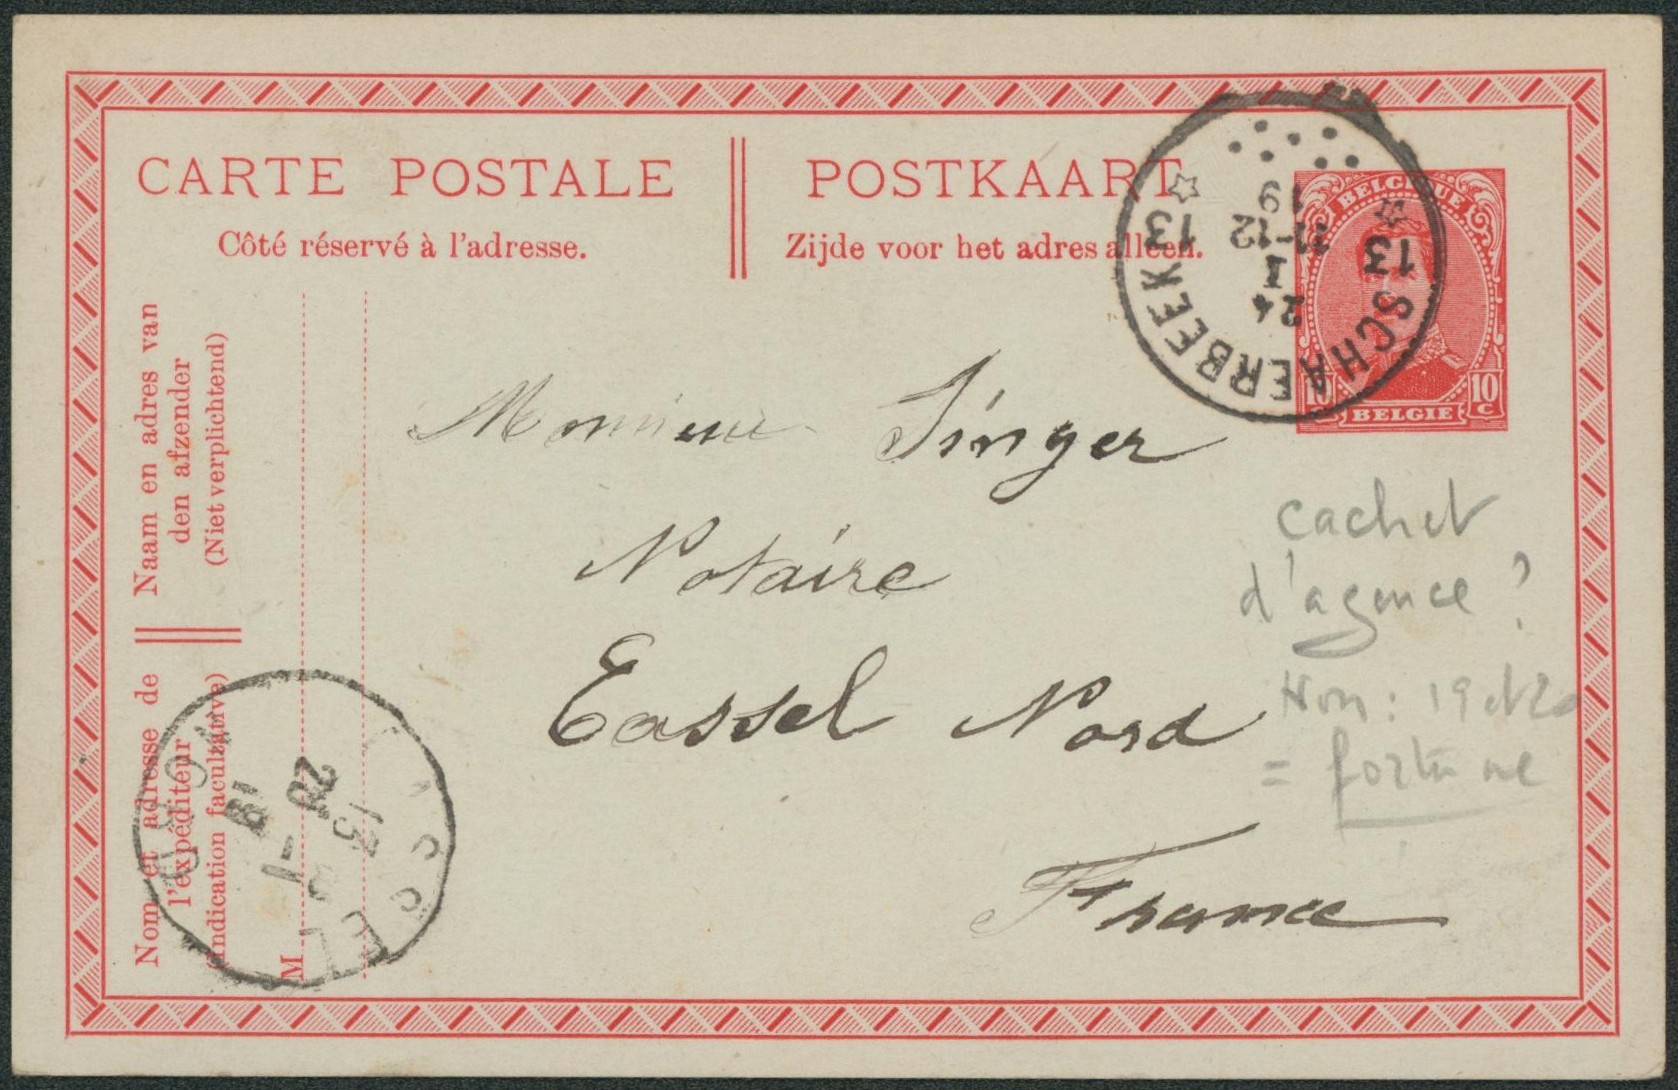 CARTE POSTALE
POSTKAART
Côté réservé à l'adresse.
Zijde voor het adres alleen.
BELGIQUE
10 10 C
BELGIE
13 SCHAERBEEK 13
24
I
11-12
19
Naam en adres van
den afzender
(Niet verplichtend)
Nom et adresse de
l'expéditeur
(Indication facultative)
M
Monsieur Singer
Notaire
Cassel Nord
France
cachet
d'agence ?
Non : 19 et 20
= fortune
NORD